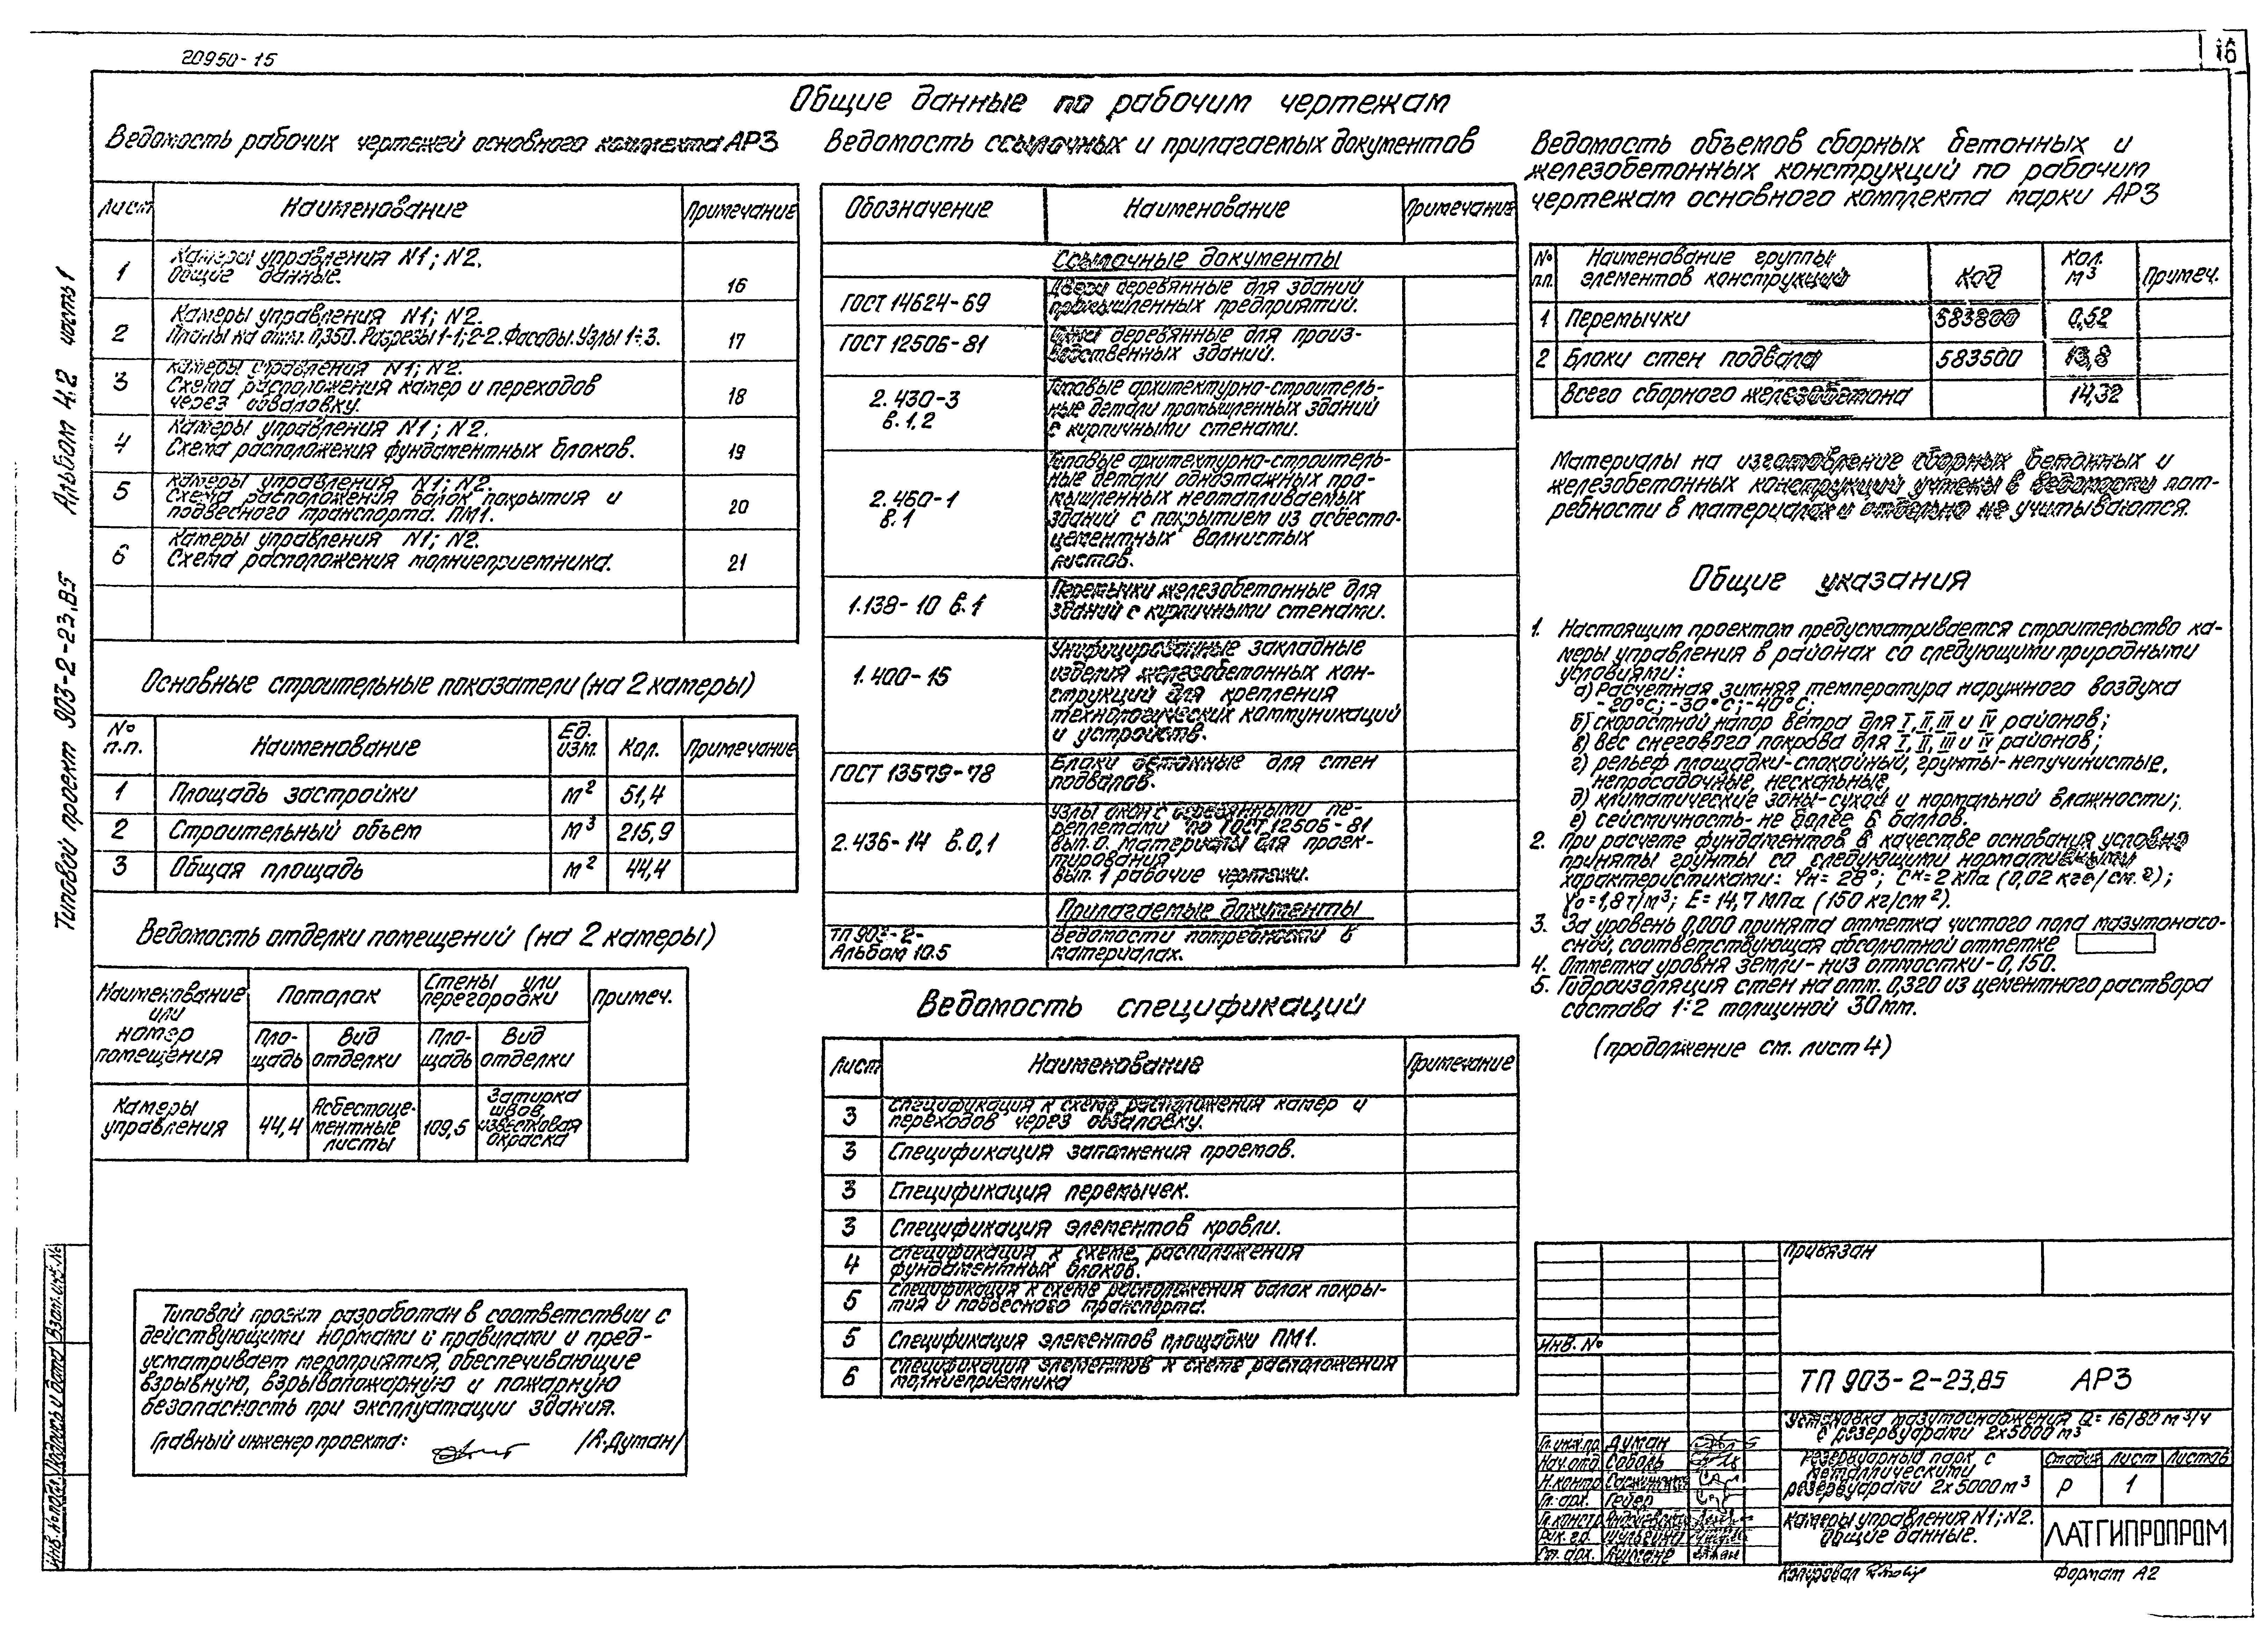 20950-15
16
Общие данные по рабочим чертежам
Ведомость рабочих чертежей основного комплекта АР3
Лист Наименование Примечание
1 Камеры управления N1; N2. Общие данные. 16
2 Камеры управления N1; N2. Планы на отм. 0,350. Разрезы 1-1; 2-2. Фасады. Узлы 1÷3. 17
3 Камеры управления N1; N2. Схема расположения камер и переходов через обваловку. 18
4 Камеры управления N1; N2. Схема расположения фундаментных блоков. 19
5 Камеры управления N1; N2. Схема расположения балок покрытия и подвесного транспорта. ПМ1. 20
6 Камеры управления N1; N2. Схема расположения молниеприемника. 21
Основные строительные показатели (на 2 камеры)
№ п.п. Наименование Ед. изм. Кол. Примечание
1 Площадь застройки м² 51,4
2 Строительный объем м³ 215,9
3 Общая площадь м² 44,4
Ведомость отделки помещений (на 2 камеры)
Наименование или номер помещения Потолок Стены или перегородки Примеч.
Пло-щадь Вид отделки Пло-щадь Вид отделки
Камеры управления 44,4 Асбестоце-ментные листы 109,5 Затирка швов, известковая окраска
Типовой проект разработан в соответствии с
действующими нормами и правилами и пред-
усматривает мероприятия, обеспечивающие
взрывную, взрывопожарную и пожарную
безопасность при эксплуатации здания.
Главный инженер проекта: /А.Думан/
Ведомость ссылочных и прилагаемых документов
Обозначение Наименование Примечание
Ссылочные документы
ГОСТ 14624-69 Двери деревянные для зданий промышленных предприятий.
ГОСТ 12506-81 Окна деревянные для произ-водственных зданий.
2.430-3 в.1,2 Типовые архитектурно-строитель-ные детали промышленных зданий с кирпичными стенами.
2.460-1 в.1 Типовые архитектурно-строитель-ные детали одноэтажных про-мышленных неотапливаемых зданий с покрытием из асбесто-цементных волнистых листов.
1.138-10 в.1 Перемычки железобетонные для зданий с кирпичными стенами.
1.400-15 Унифицированные закладные изделия железобетонных кон-струкций для крепления технологических коммуникаций и устройств.
ГОСТ 13579-78 Блоки бетонные для стен подвалов.
2.436-14 в.0,1 Узлы окон с деревянными пе-реплетами по ГОСТ 12506-81 вып.0. материалы для проек-тирования вып.1 рабочие чертежи.
Прилагаемые документы
ТП 903-2- Альбом 10.5 Ведомости потребности в материалах.
Ведомость спецификаций
Лист Наименование Примечание
3 Спецификация к схеме расположения камер и переходов через обваловку.
3 Спецификация заполнения проемов.
3 Спецификация перемычек.
3 Спецификация элементов кровли.
4 Спецификация к схеме расположения фундаментных блоков.
5 Спецификация к схеме расположения балок покры-тия и подвесного транспорта.
5 Спецификация элементов площадки ПМ1.
6 Спецификация элементов к схеме расположения молниеприемника
Ведомость объемов сборных бетонных и
железобетонных конструкций по рабочим
чертежам основного комплекта марки АР3
№ п.п. Наименование группы элементов конструкций Код Кол. м³ Примеч.
1 Перемычки 583800 0,52
2 Блоки стен подвала 583500 13,8
Всего сборного железобетона 14,32
Материалы на изготовление сборных бетонных и
железобетонных конструкций учтены в ведомости пот-
ребности в материалах и отдельно не учитываются.
Общие указания
1. Настоящим проектом предусматривается строительство ка-
меры управления в районах со следующими природными
условиями:
а) Расчетная зимняя температура наружного воздуха
-20°С; -30°С; -40°С;
б) скоростной напор ветра для I, II, III и IV районов;
в) вес снегового покрова для I, II, III и IV районов;
г) рельеф площадки-спокойный, грунты-непучинистые,
непросадочные, нескальные,
д) климатические зоны-сухой и нормальной влажности;
е) сейсмичность-не более 6 баллов.
2. При расчете фундаментов в качестве основания условно
приняты грунты со следующими нормативными
характеристиками: φн=28°; Сн=2 кПа (0,02 кгс/см²);
γо=1,8т/м³; Е=14,7 МПа (150 кг/см²).
3. За уровень 0,000 принята отметка чистого пола мазутонасо-
сной, соответствующая абсолютной отметке
4. Отметка уровня земли-низ отмостки-0,150.
5. Гидроизоляция стен на отм. 0,320 из цементного раствора
состава 1:2 толщиной 30мм.
(продолжение см. лист 4)
Привязан
Инв. №
ТП 903-2-23.85 АР3
Установка мазутоснабжения Q=16/80 м³/ч
с резервуарами 2х5000м³
Резервуарный парк с
металлическими
резервуарами 2х5000м³
Стадия Лист Листов
Р 1
Камеры управления N1; N2.
Общие данные.
ЛАТГИПРОПРОМ
Гл. инж. пр. Думан
Нач. отд. Соболь
Н. контр.
Гл. арх. Гебер
Гл. констр.
Рук. гр.
Ст. арх.
Копировал
Формат А2
Типовой проект 903-2-23.85 Альбом 4.2 часть 1
Инв.№ подл. Подпись и дата Взам.инв.№